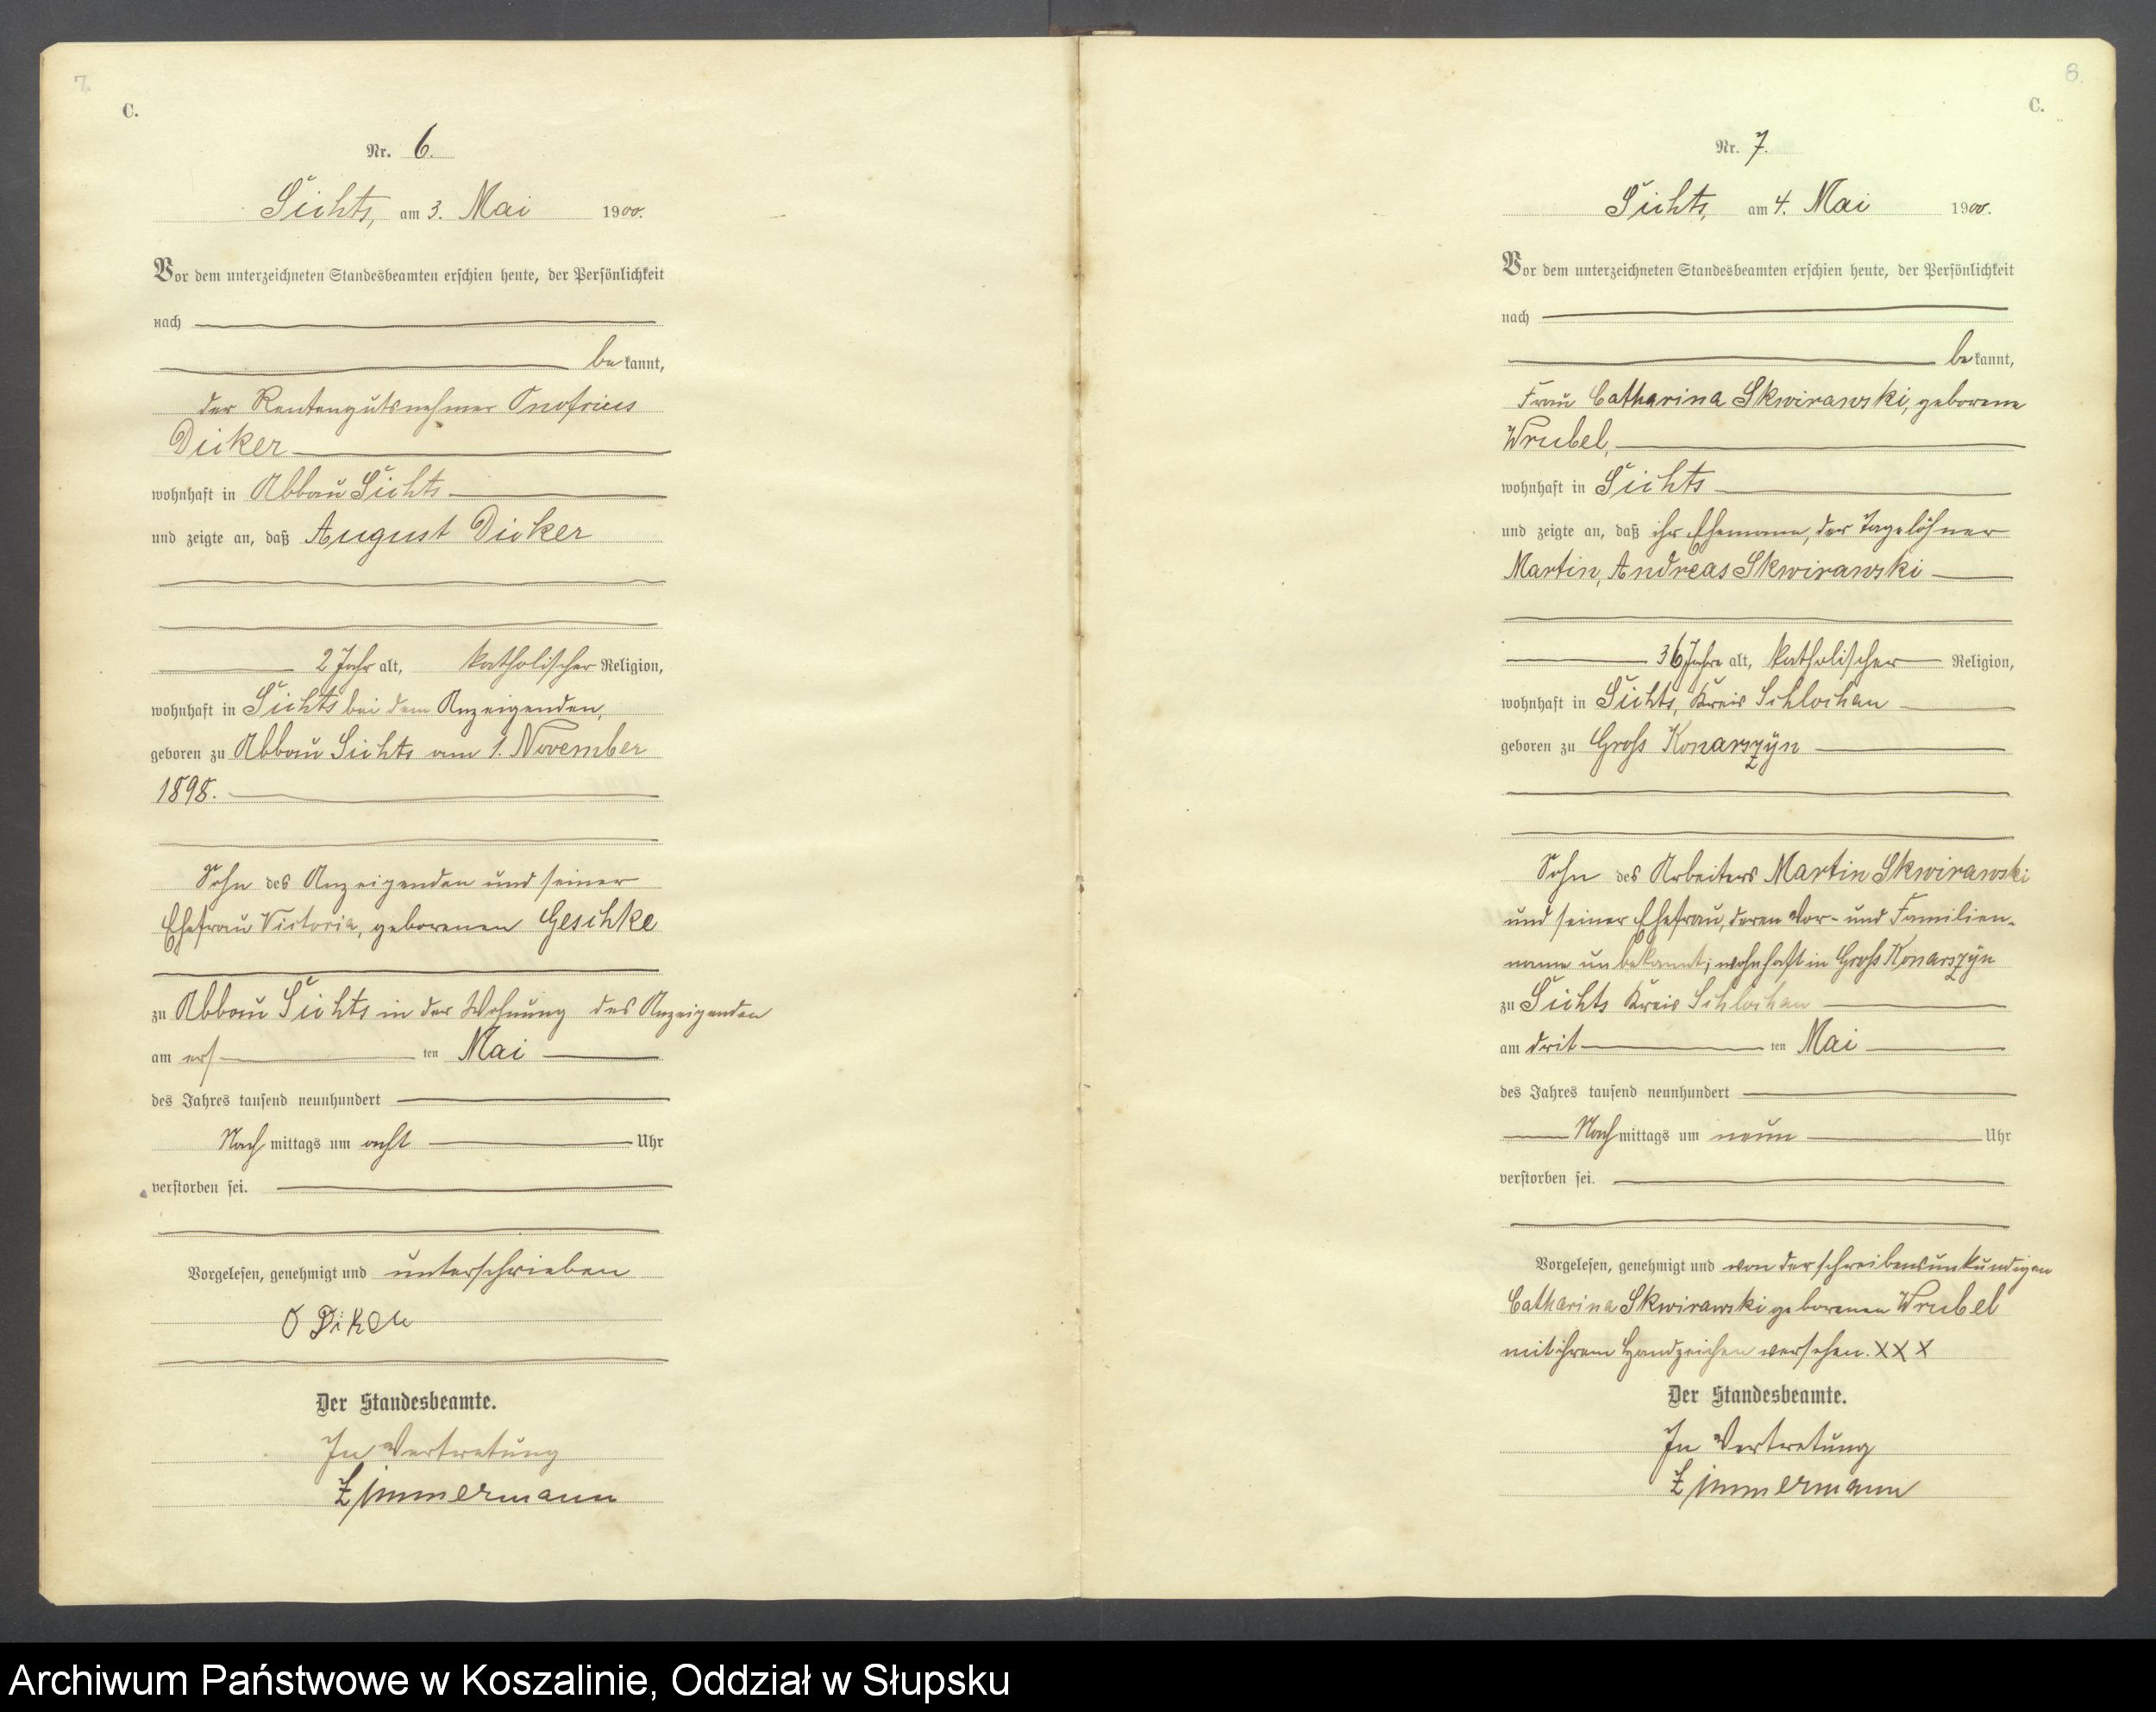 7.
C.
Nr. 6.
Sichts, am 3. Mai 1900.
Vor dem unterzeichneten Standesbeamten erschien heute, der Persönlichkeit
nach
be kannt,
der Rentengutsnehmer Onofrius
Dicker
wohnhaft in Abbau Sichts
und zeigte an, daß August Dicker
2 Jahr alt, katholischer Religion,
wohnhaft in Sichts bei dem Anzeigenden,
geboren zu Abbau Sichts am 1. November
1898.
Sohn des Anzeigenden und seiner
Ehefrau Victoria, geborenen Geschke
zu Abbau Sichts in der Wohnung des Anzeigenden
am ers ten Mai
des Jahres tausend neunhundert
Nach mittags um acht Uhr
verstorben sei.
Vorgelesen, genehmigt und unterschrieben
O Diker
Der Standesbeamte.
In Vertretung
Zimmermann
8.
C.
Nr. 7.
Sichts, am 4. Mai 1900.
Vor dem unterzeichneten Standesbeamten erschien heute, der Persönlichkeit
nach
be kannt,
Frau Catharina Skwirawski, geborene
Wrubel,
wohnhaft in Sichts
und zeigte an, daß ihr Ehemann, der Tagelöhner
Martin, Andreas Skwirawski
36 Jahre alt, katholischer Religion,
wohnhaft in Sichts, Kreis Schlochau
geboren zu Groß Konarszyn
Sohn des Arbeiters Martin Skwirawski
und seiner Ehefrau, deren Vor- und Familien-
name unbekannt; wohnhaft in Groß Konarszyn
zu Sichts Kreis Schlochau
am drit ten Mai
des Jahres tausend neunhundert
Nach mittags um neun Uhr
verstorben sei.
Vorgelesen, genehmigt und von der schreibensunkundigen
Catharina Skwirawski geborenen Wrubel
mit ihrem Handzeichen versehen. XXX
Der Standesbeamte.
In Vertretung
Zimmermann
Archiwum Państwowe w Koszalinie, Oddział w Słupsku